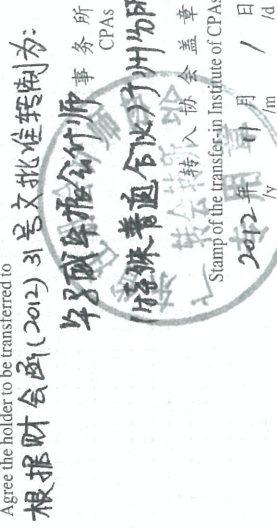 Agree the holder to be transferred to
根据财会函(2012)31号文批准转制为:
毕马威华振会计师 事务所
CPAs
(特殊普通合伙)广州分所
转入协会盖章
Stamp of the transfer-in Institute of CPAs
2012年 11月 1日
/y /m /d